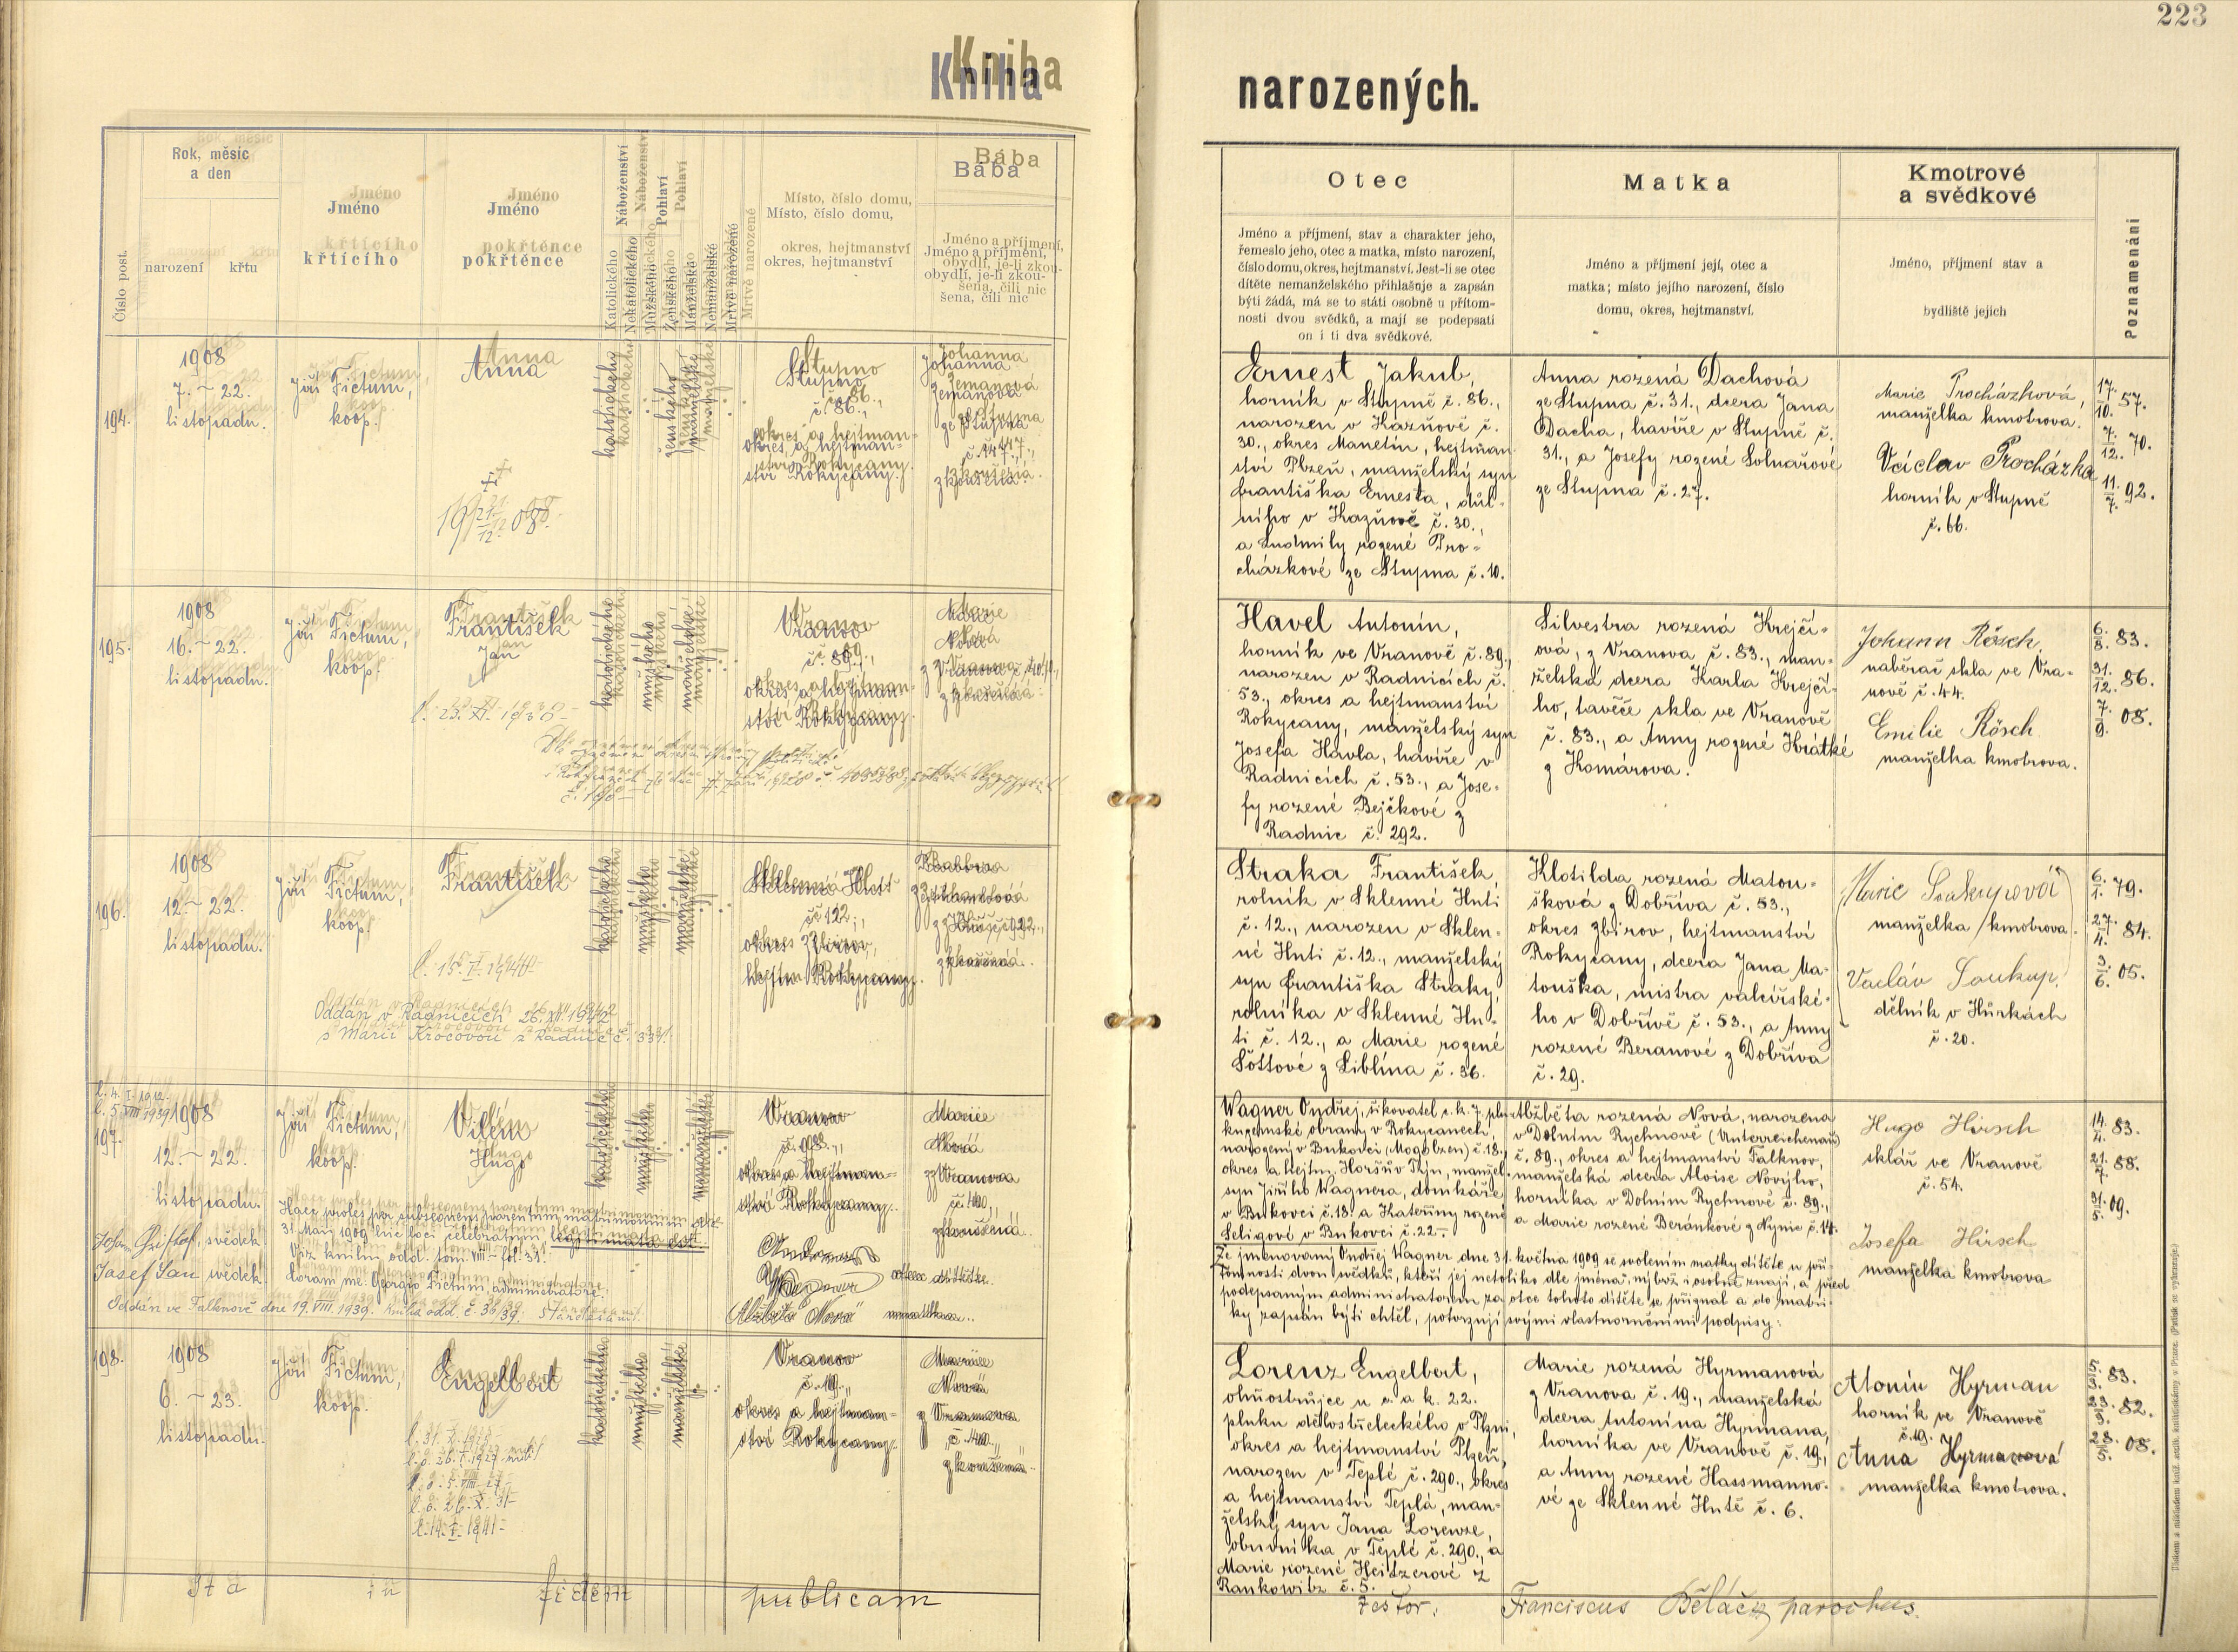 223
Kniha
narozených.
Číslo post.
Rok, měsíc
a den
narození křtu
Jméno
křtícího
Jméno
pokřtěnce
Náboženství
Katolického
Nekatolického
Pohlaví
Mužského
Ženského
Manželské
Nemanželské
Mrtvě narozené
Místo, číslo domu,
okres, hejtmanství
Bába
Jméno a příjmení,
obydlí, je-li zkou-
šena, čili nic
Otec
Jméno a příjmení, stav a charakter jeho,
řemeslo jeho, otec a matka, místo narození,
číslo domu, okres, hejtmanství. Jest-li se otec
dítěte nemanželského přihlašuje a zapsán
býti žádá, má se to státi osobně u přítom-
nosti dvou svědků, a mají se podepsati
on i ti dva svědkové.
Matka
Jméno a příjmení její, otec a
matka; místo jejího narození, číslo
domu, okres, hejtmanství.
Kmotrové
a svědkové
Jméno, příjmení stav a
bydliště jejich
Poznamenání
194.
1908
7. ~ 22.
listopadu.
Jiří Fictum,
koop.
Anna
†
19 21/12 08.
katolického
ženského
manželské
Stupno
č. 86.,
okres a hejtman-
ství Rokycany.
Johanna
Zemanová
ze Stupna
č. 147.,
zkoušená.
Ernest Jakub,
horník v Stupně č. 86.,
narozen v Kaznově č.
30., okres Manetín, hejtman
ství Plzeň, manželský syn
Františka Ernesta, důl-
ního v Kaznově č. 30.,
a Ludmily rozené Pro-
cházkové ze Stupna č. 10.
Anna rozená Dachová
ze Stupna č. 31., dcera Jana
Dacha, havíře v Stupně č.
31., a Josefy rozené Solnařové
ze Stupna č. 27.
Marie Procházková,
manželka kmotrova.
Václav Procházka
horník v Stupně
č. 66.
17./10. 57.
7./12. 70.
11./7. 92.
195.
1908
16. ~ 22.
listopadu.
Jiří Fictum,
koop.
František
Jan
l. 23. XI. 1938
katolického
mužského
manželské
Vranov
č. 89.,
okres a hejtman-
ství Rokycany.
Marie
Nová
z Vranova č. 40.,
zkoušená.
Havel Antonín,
horník ve Vranově č. 89.,
narozen v Radnicích č.
53., okres a hejtmanství
Rokycany, manželský syn
Josefa Havla, havíře v
Radnicích č. 53., a Jose-
fy rozené Bejčkové z
Radnic č. 292.
Silvestra rozená Krejčí-
ová, z Vranova č. 83., man-
želská dcera Karla Krejčí-
ho, taviče skla ve Vranově
č. 83., a Anny rozené Krátké
z Komárova.
Johann Rösch,
naběrač skla ve Vra-
nově č. 44.
Emilie Rösch
manželka kmotrova.
6./8. 83.
31./12. 86.
7./9. 08.
196.
1908
12. ~ 22.
listopadu.
Jiří Fictum,
koop.
František
l. 15. I. 1940
Oddán v Radnicích 26. XII. 1942
s Marií Kročovou z Radnic č. 331.
katolického
mužského
manželské
Sklenná Huť
č. 12.,
okres Zbirov,
hejtm. Rokycany.
Barbora
zkoušená.
Straka František
rolník v Sklenné Huti
č. 12., narozen v Sklen-
né Huti č. 12., manželský
syn Františka Straky,
rolníka v Sklenné Hu-
ti č. 12., a Marie rozené
Šottové z Liblína č. 36.
Klotilda rozená Matou-
šková z Dobříva č. 53.,
okres Zbirov, hejtmanství
Rokycany, dcera Jana Ma-
touška, mistra valcířské-
ho v Dobřívě č. 53., a Anny
rozené Beranové z Dobříva
č. 29.
Marie Soukupová
manželka kmotrova.
Václáv Soukup
dělník v Hůrkách
č. 20.
6./1. 79.
27./4. 84.
3./6. 05.
l. 4. I. 1912.
l. 5. VIII 1939
197.
1908
12. ~ 22.
listopadu.
Jiří Fictum,
koop.
Vilém
Hugo
Haec proles per subsequens parentum matrimonium die
31. Maii 1909 hic loci celebratum legitimata est.
Viz knihu odd. tom. VIII ~ fol. 31.
Coram me: Georgio Fictum, administratore.
svědek.
Josef svědek.
Oddán ve Falknově dne 19. VIII. 1939. Kniha odd. č. 36/39.
katolického
mužského
nemanželské
Vranov
okres a hejtman-
ství Rokycany.
Marie
Nová
z Vranova
č. 40.,
zkoušená.
otec dítěte.
Alžběta Nová matka.
Wagner Ondřej, šikovatel c. k. 7. plu
ku zemské obrany v Rokycanech,
narozený v Bukovci (Mogolzen) č. 18.,
okres a hejtm. Horšův Týn, manžel.
syn Jiřího Wagnera, domkáře
v Bukovci č. 18. a Kateřiny rozené
Seligové v Bukovci č. 22.
Že jmenovaný Ondřej Wagner dne 31. května 1909 se svolením matky dítěte u pří-
tomnosti dvou svědků, kteří jej netoliko dle jména, nýbrž i osobně znají, a před
podepsaným administratorem za otce tohoto dítěte se přiznal a do matri-
ky zapsán býti chtěl, potvrzují svými vlastnoručními podpisy:
Alžběta rozená Nová, narozena
v Dolním Rychnově (Unterreichenau)
č. 89., okres a hejtmanství Falknov,
manželská dcera Aloise Nového,
horníka v Dolním Rychnově č. 89.,
a Marie rozené Beránkové z Kynic č. 14.
Hugo Hirsch
sklář ve Vranově
č. 54.
Josefa Hirsch
manželka kmotrova
14./4. 83.
21./7. 88.
31./5. 09.
198.
1908
6. ~ 23.
listopadu.
Jiří Fictum,
koop.
Engelbert
l. 14. I. 1941
katolického
mužského
manželské
Vranov
č. 19.,
okres a hejtman-
ství Rokycany.
Marie
Nová
z Vranova
č. 40.,
zkoušená.
Lorenz Engelbert,
ohňostrůjce u c. a k. 22.
pluku dělostřeleckého v Plzni,
okres a hejtmanství Plzeň,
narozen v Teplé č. 290., okres
a hejtmanství Teplá, man-
želský syn Jana Lorenze,
obuvníka v Teplé č. 290., a
Marie rozené Heidzerové z
Rankowitz č. 5.
Marie rozená Hyrmanová
z Vranova č. 19., manželská
dcera Antonína Hyrmana,
horníka ve Vranově č. 19.,
a Anny rozené Hassmanno-
vé ze Sklenné Hutě č. 6.
Atonín Hyrman
horník ve Vranově
č. 19.
Anna Hyrmanová
manželka kmotrova.
5./3. 83.
23./9. 82.
28./5. 08.
Ita in fidem publicam
testor: Franciscus Běláček, parochus.